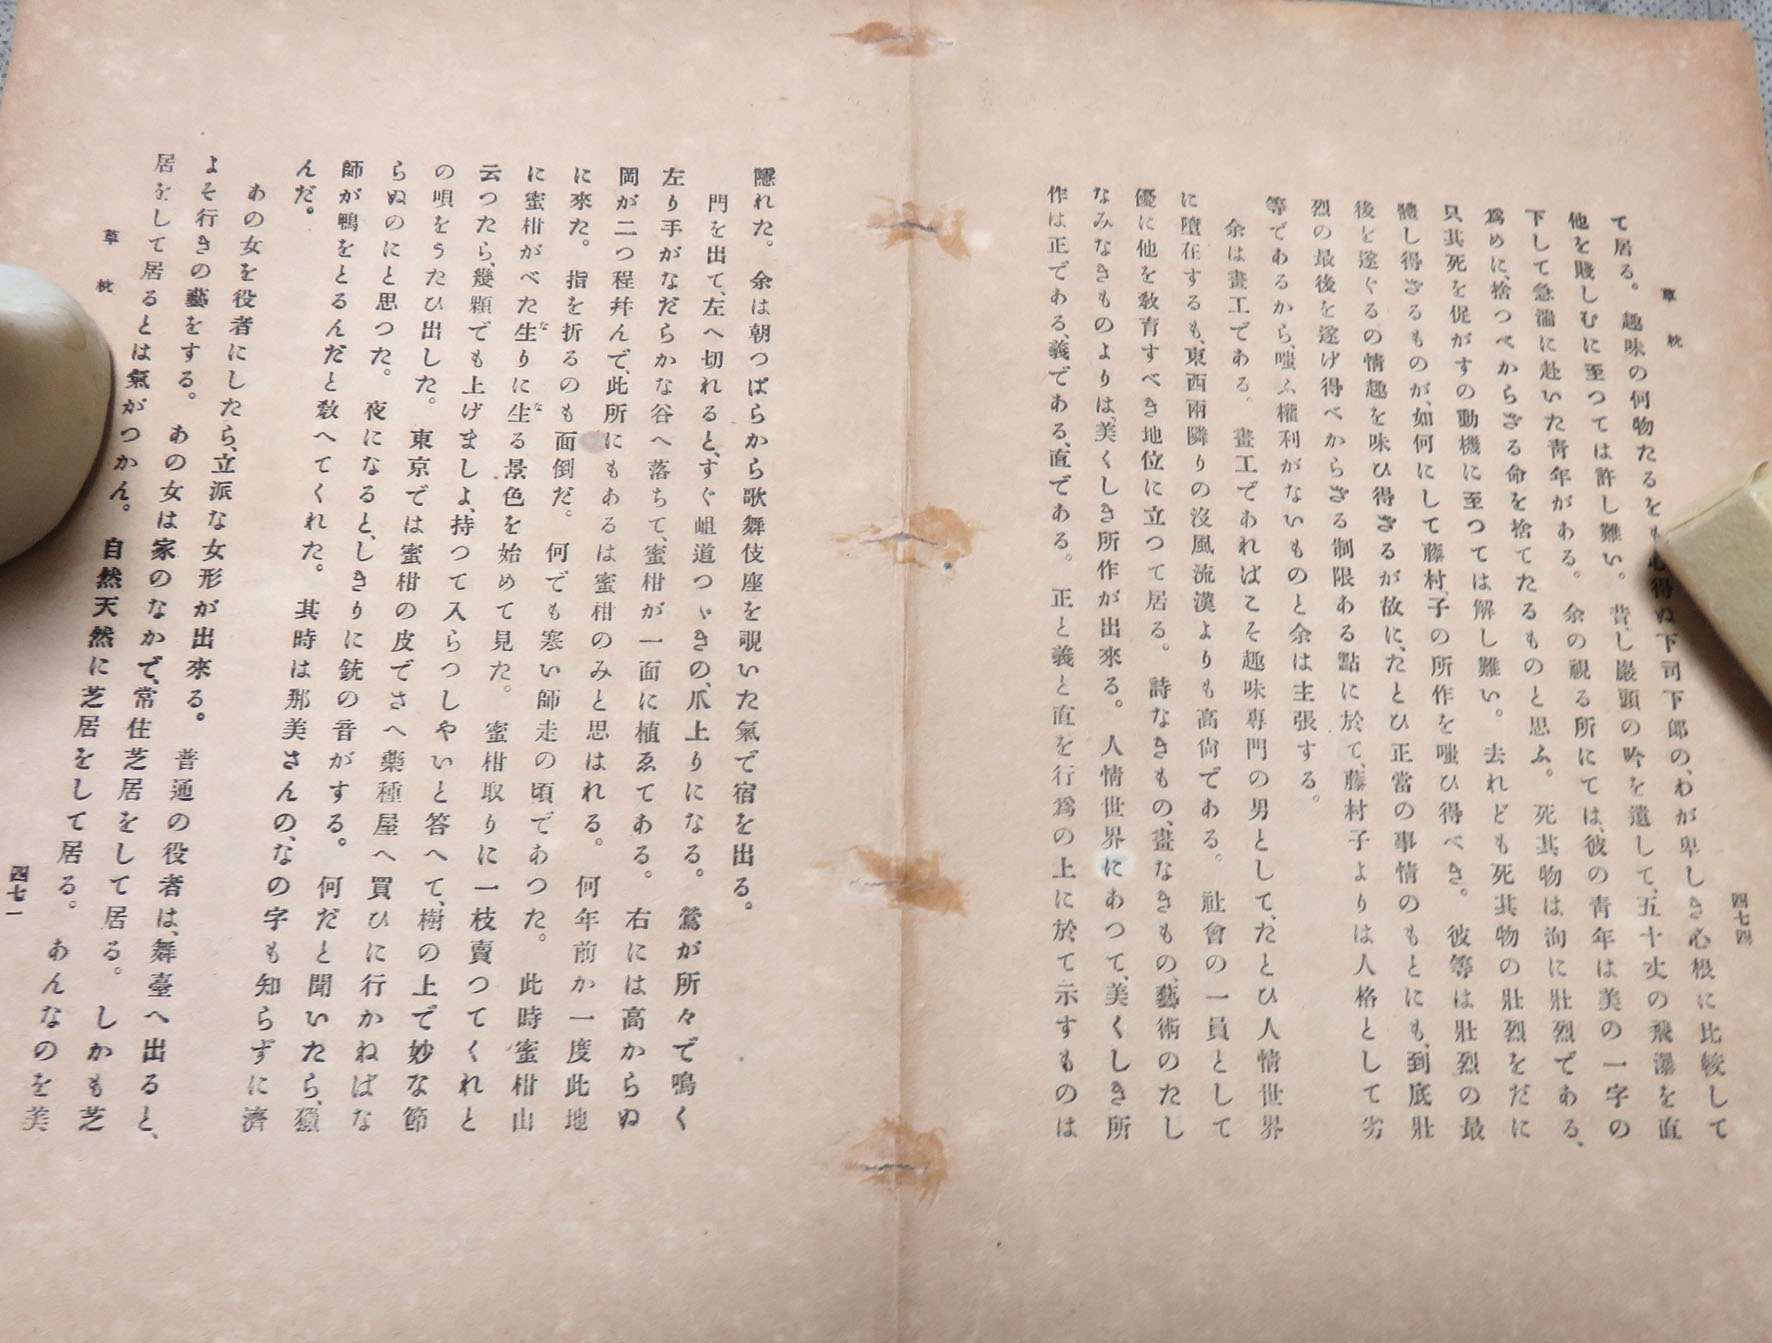 草枕
四七四
て居る。趣味の何物たるをも心得ぬ下司下郎の、わが卑しき心根に比較して
他を賤しむに至つては許し難い。昔し巖頭の吟を遺して、五十丈の飛瀑を直
下して急湍に赴いた靑年がある。余の視る所にては、彼の靑年は美の一字の
爲めに、捨つべからざる命を捨てたるものと思ふ。死其物は洵に壯烈である、
只其死を促がすの動機に至つては解し難い。去れども死其物の壯烈をだに
體し得ざるものが、如何にして藤村子の所作を嗤ひ得べき。彼等は壯烈の最
後を遂ぐるの情趣を味ひ得ざるが故に、たとひ正當の事情のもとにも、到底壯
烈の最後を遂げ得べからざる制限ある點に於て、藤村子よりは人格として劣
等であるから、嗤ふ權利がないものと余は主張する。
余は畫工である。畫工であればこそ趣味專門の男として、たとひ人情世界
に墮在するも、東西兩隣りの沒風流漢よりも高尙である。社會の一員として
優に他を敎育すべき地位に立つて居る。詩なきもの、畫なきもの、藝術のたし
なみなきものよりは、美くしき所作が出來る。人情世界にあつて、美くしき所
作は正である、義である、直である。正と義と直を行爲の上に於て示すものは
隱れた。余は朝つぱらから歌舞伎座を覗いた氣で宿を出る。
門を出て、左へ切れると、すぐ岨道つゞきの、爪上りになる。鶯が所々で鳴く
左り手がなだらかな谷へ落ちて、蜜柑が一面に植ゑてある。右には高からぬ
岡が二つ程幷んで、此所にもあるは蜜柑のみと思はれる。何年前か一度此地
に來た。指を折るのも面倒だ。何でも寒い師走の頃であつた。此時蜜柑山
に蜜柑がべた生りに生る景色を始めて見た。蜜柑取りに一枝賣つてくれと
云つたら、幾顆でも上げましよ、持つて入らつしやいと答へて、樹の上で妙な節
の唄をうたひ出した。東京では蜜柑の皮でさへ藥種屋へ買ひに行かねばな
らぬのにと思つた。夜になると、しきりに銃の音がする。何だと聞いたら、獵
師が鴨をとるんだと敎へてくれた。其時は那美さんの、なの字も知らずに濟
んだ。
あの女を役者にしたら、立派な女形が出來る。普通の役者は、舞臺へ出ると、
よそ行きの藝をする。あの女は家のなかで、常住芝居をして居る。しかも芝
居をして居るとは氣がつかん。自然天然に芝居をして居る。あんなのを美
草枕
四七一